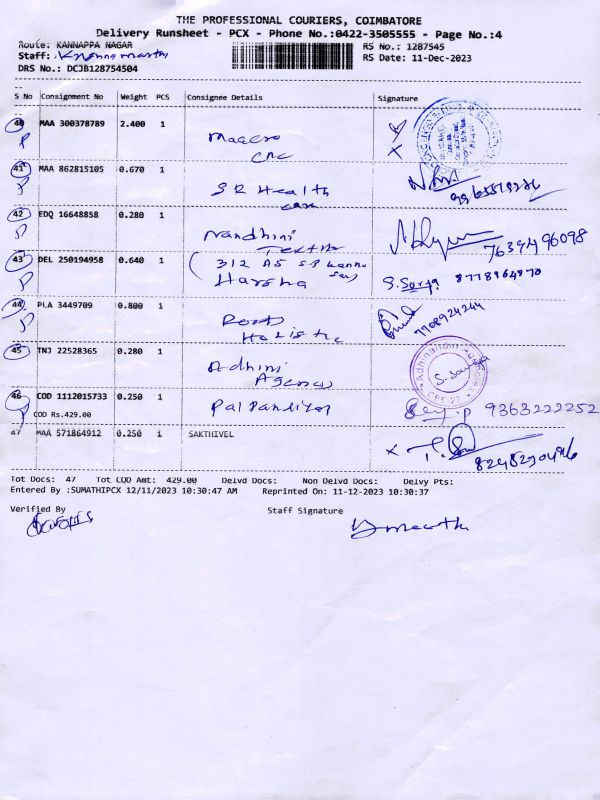 THE PROFESSIONAL COURIERS, COIMBATORE
Delivery Runsheet - PCX - Phone No.:0422-3505555 - Page No.:4
Route: KANNAPPA NAGAR
RS No.: 1287545
Staff:
RS Date: 11-Dec-2023
DRS No.: DCJB128754504
S No Consignment No Weight PCS Consignee Details Signature
40 MAA 300378789 2.400 1
CNC
41 MAA 862815105 0.670 1
SR Health
care
42 EDQ 16648858 0.280 1
Nandhini
7639496098
43 DEL 250194958 0.640 1
Harsha
S.Surya 8778964870
44 PLA 3449709 0.800 1
Roots
Holistic
7708924244
45 TNJ 22528365 0.280 1
Adhini
Agencies
S. Surya
46 COD 1112015733 0.250 1
COD Rs.429.00
9363222252
47 MAA 571864912 0.250 1 SAKTHIVEL
Tot Docs: 47 Tot COD Amt: 429.00 Delvd Docs: Non Delvd Docs: Delvy Pts:
Entered By :SUMATHIPCX 12/11/2023 10:30:47 AM Reprinted On: 11-12-2023 10:30:37
Verified By Staff Signature